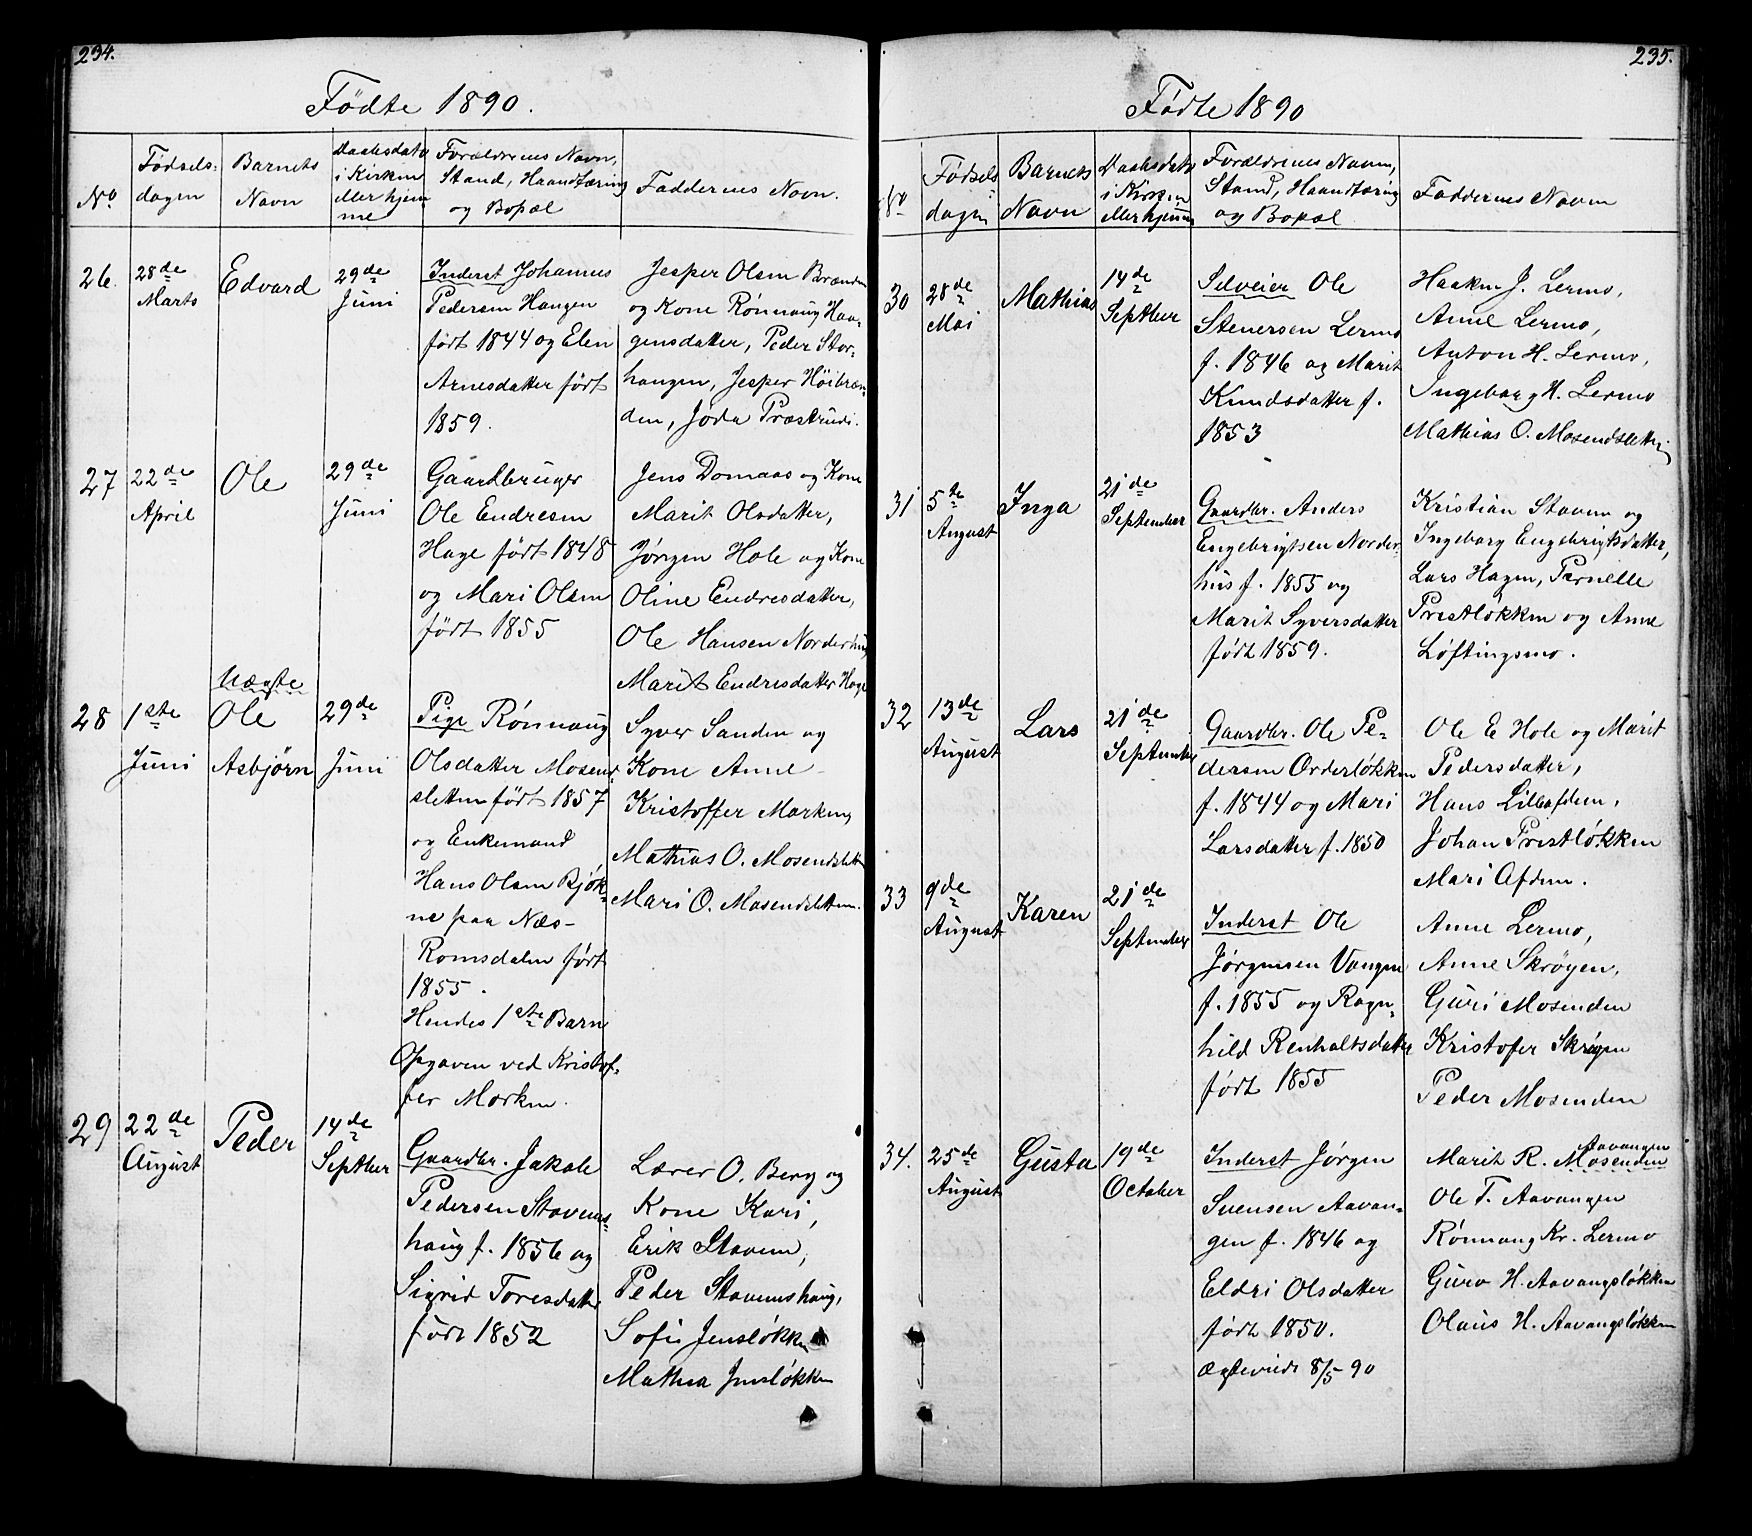 234.
Födte 1890.
No
Födsels-
dagen
Barnets
Navn
Daabsdato
i Kirken
eller hjem
me
Forældrenes Navn,
Stand, Haandtæring
og Bopæl
Faddernes Navn.
26.
28de
Marts
Edvard
29de
Juni
Inderst Johannes
Pedersen Haugen
født 1844 og Elen
Arnesdatter født
1859.
Jesper Olsen Brænden
og Kone Rønnaug Haa-
gensdatter, Peder Stor-
haugen, Jesper Höibræn-
den, Joda Præstrud.
27
22de
April
Ole
29de
Juni
Gaardbruger
Ole Endresen
Hage født 1848
og Mari Olsen
født 1855
Jens Domaas og Kone
Marit Olsdatter,
Jørgen Hole og Kone
Oline Endresdatter,
Ole Hansen Norderhus
Marit Endresdatter Hage
28
1ste
Juni
Uægte
Ole
Asbjörn
29de
Juni
Pige Rönnaug
Olsdatter Mosend-
sletten født 1857
og Enkemand
Hans Olsen Bjök-
ne paa Næs-
Romsdalen født
1855.
Hendes 1ste Barn
Opgaven ved Kristof-
fer Morken.
Syver Sanden og
Kone Anne
Kristoffer Morken,
Mathias O. Mosendslett
Mari O. Mosendsletten.
29
22de
August
Peder
14de
Septber
Gaardbr. Jakob
Pedersen Stavens-
haug f. 1856 og
Sigrid Toresdatter
født 1852
Lærer O. Berg og
Kone Kari,
Erik Staven,
Peder Stavenshaug,
Sofie Jensløkken
Mathea Jensløkken
235.
Födte 1890
No
Födsels
dagen
Barnets
Navn
Daabsdato
i Kirken
eller hjemme
Forældrenes Navn,
Stand, Haandtæring
og Bopæl
Faddernes Navn
30
28de
Mai
Mathias
14de
Septber
Selveier Ole
Stenersen Lermo
f. 1846 og Marit
Knudsdatter f.
1853
Haaken J. Lermo,
Anne Lermo,
Anton H. Lermo,
Ingeborg H. Lermo
Mathias O. Mosendsletten
31
5te
August
Inga
21de
September
Gaardbr. Anders
Engebrigtsen Norder-
hus f. 1855 og
Marit Syversdatter
født 1859.
Kristian Staven og
Ingeborg Engebrigtsdatter,
Lars Hagen, Pernelle
Prestløkken og Anne
Løftingsmo.
32
13de
August
Lars
21de
September
Gaardbr. Ole Pe-
dersen Orderløkken
f. 1844 og Mari
Larsdatter f. 1850
Ole E Hole og Marit
Pedersdatter,
Hans Lilleafdem,
Johan Prestløkken
Mari Afdem.
33
9de
August
Karen
21de
September
Inderst Ole
Jørgensen Vangen
f. 1855 og Ragn-
hild Renhaltsdatter
født 1855
Anne Lermo,
Anne Skröyen,
Guri Mosenden
Kristofer Skröyen
Peder Mosenden
34.
25de
August
Gusta
19de
October
Inderst Jørgen
Svensen Aavan-
gen f. 1846 og
Eldri Olsdatter
født 1850.
Ægteviede 8/5 90
Aavangen
Marit R. Mosenden
Ole T. Aavangen
Rønnaug Kr. Lermo
Guro H. Aavangsløkken
Olaus H. Aavangsløkken